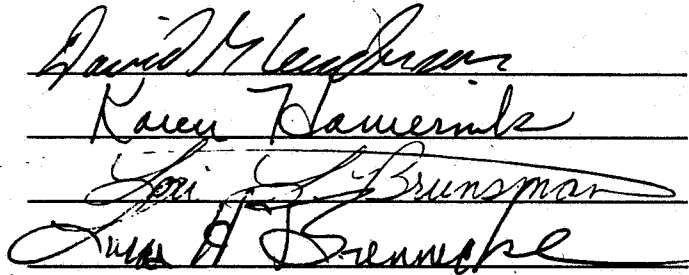 David M Anderson
Karen Hamernik
Lori L Brunsman
Lucas H Brennecke